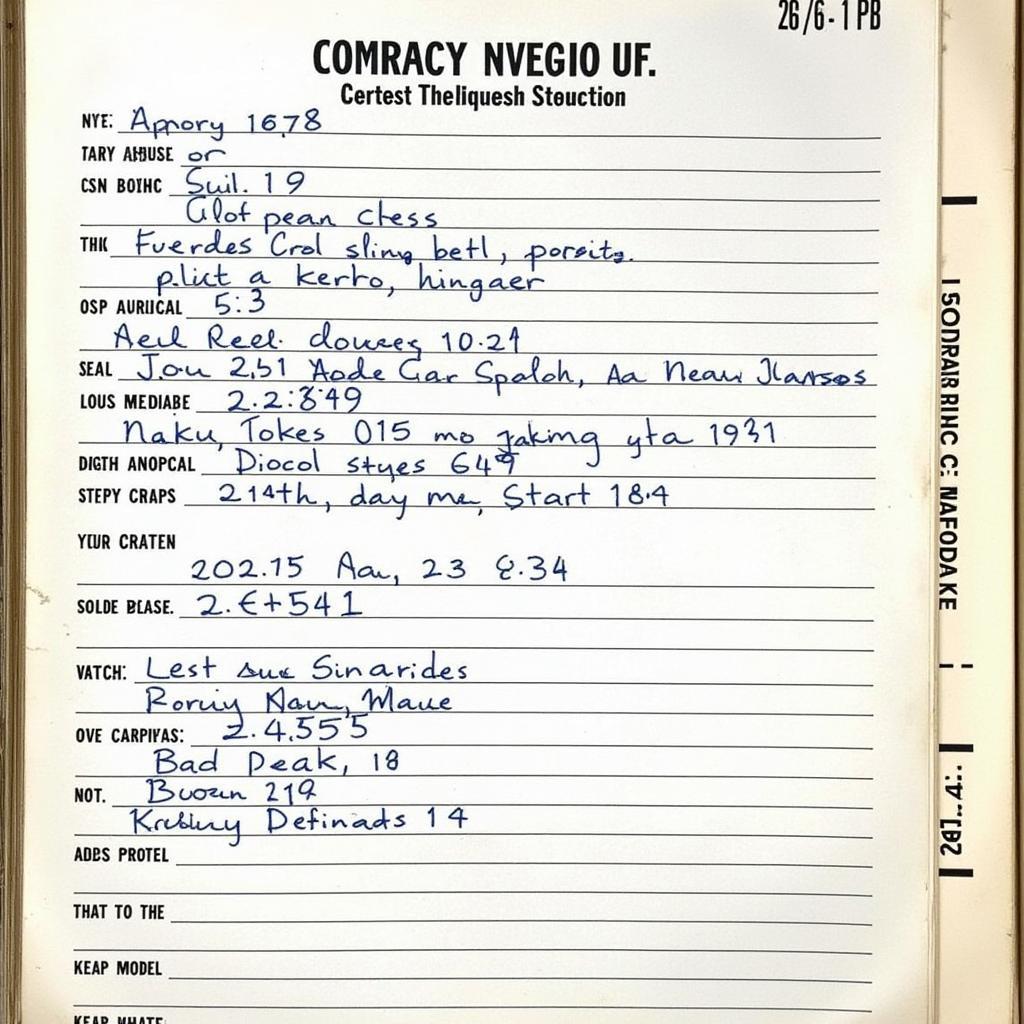 26/6-1 PB
COMRACY NVEGIO UF.
Certest Theliquesh Stouction
NYE: Apnory 1678
TARY or
CSN Suil. 19
Glot pean chess
THK Fuerdes Crol sling betl, porsits.
plict a kerto, hingaer
OSP AURIICAL 5:3
Aeul Reel. douceg 10.21
SEAL Jou 2,51 Aode Gar Spaloh, Aa Neaw
LOUS MEDIABE 2.2:849
Naku, Tokes 015 mo yta 1931
DIGTH ANOPCAL Diocol styes 649
STEPY CRAPS 214th, day me, Start 18.4
YOUR CRATEN
202.15 Aau, 23 8.34
SOLDE BLASE. 2.€+541
VATCH: Lest sue Sinarides
Roruiy Nau, Maue
OVE 2.4.555
Bad Deak, 18
NOT. Buozn 219
Definads 14
ADBS PROTEL
THAT TO THE
KEAP MODEL
KEAP WHATE: